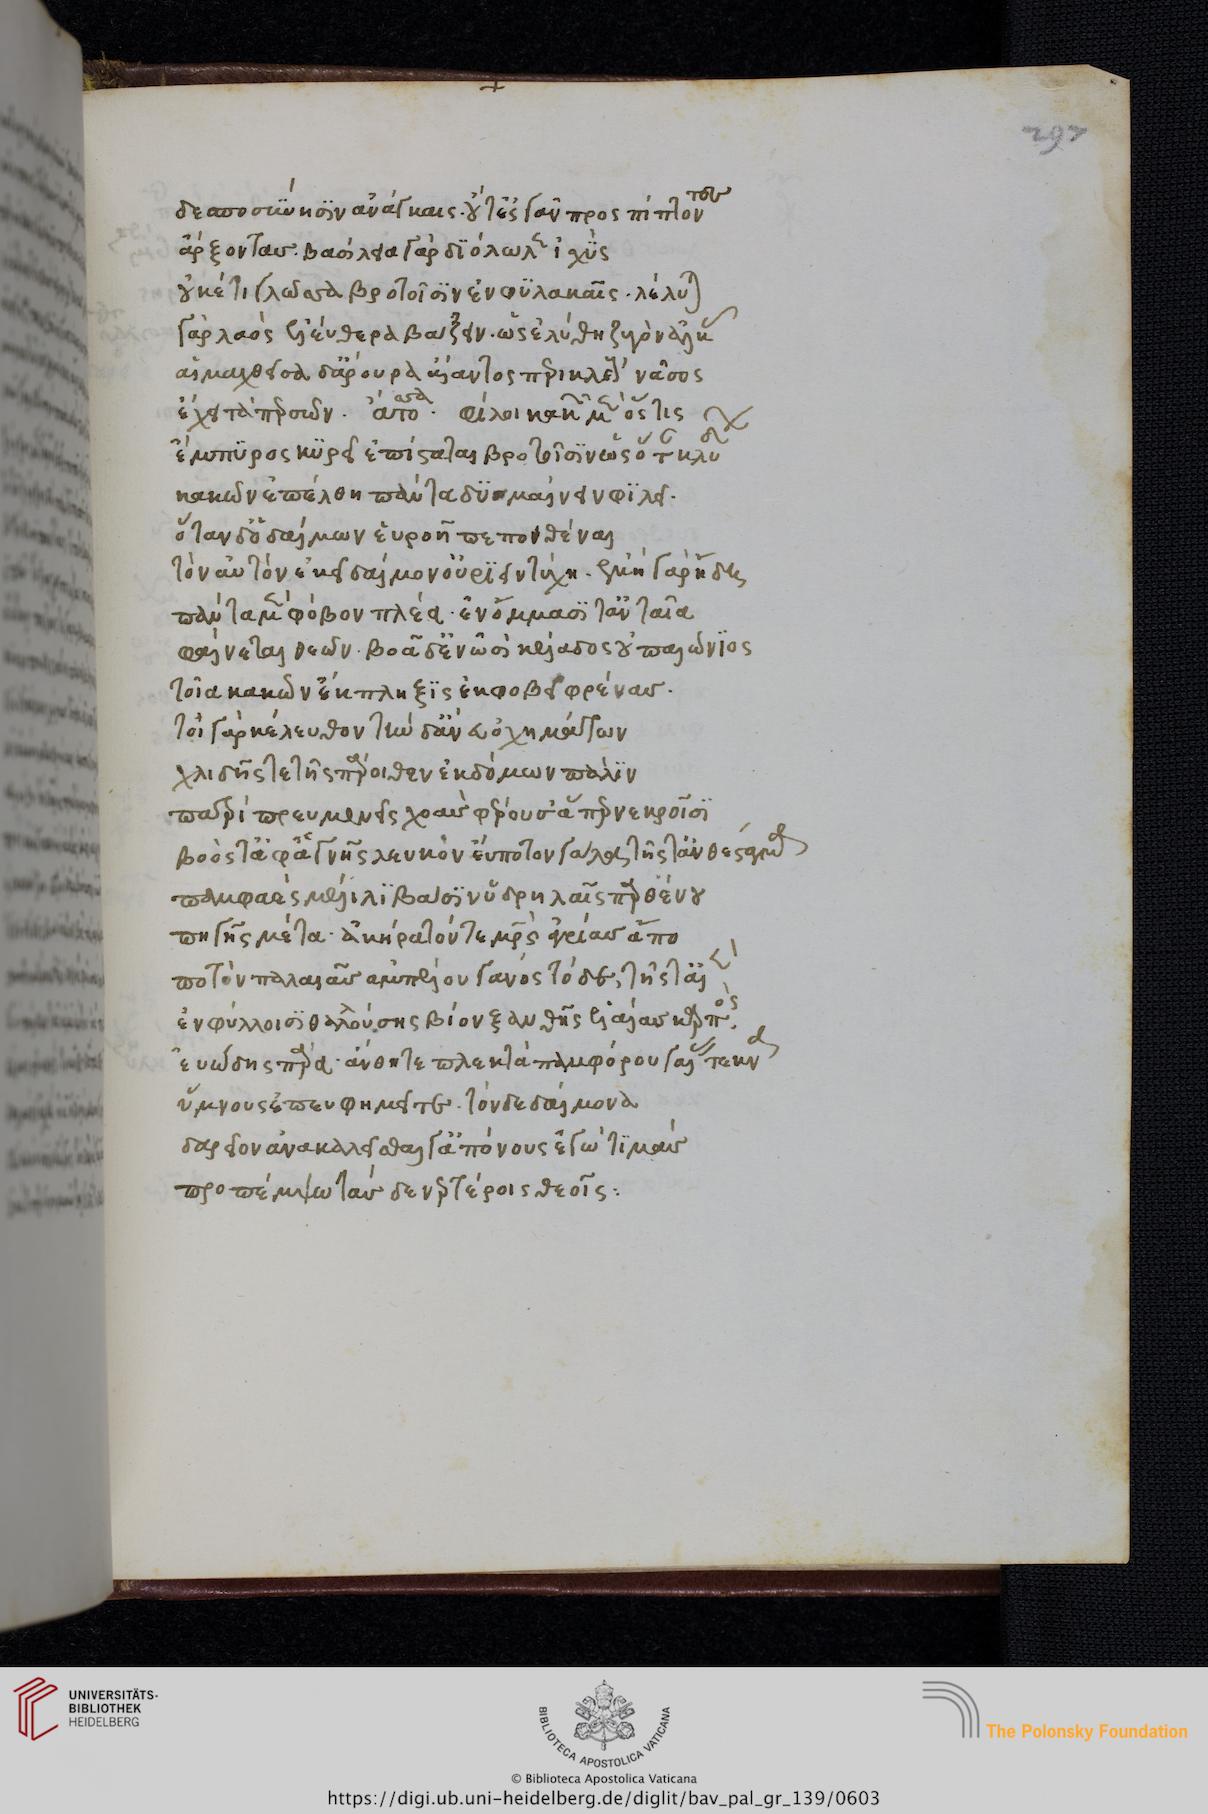 δεσποσύνησιν ἀνάγκαις. οὔτ ἐς γᾶν προσπίπτοντες
ἄρξονται. βασίλεια γὰρ διόλωλεν ἰσχὺς
οὐκέτι γλῶσσα βροτοῖσιν ἐν φυλακαῖς. λέλυται
γὰρ λαὸς ἐλεύθερα βάζειν. ὡς ἐλύθη ζυγὸν ἀλκᾶς
αἱμαχθεῖσα δ ἄρουρα αἴαντος νᾶσος
ἔχει τὰ περσῶν. ἄτοσσα. φίλοι κακῶν μὲν ὅστις
ἔμπυρος κυρεῖ ἐπίσταται βροτοῖσιν ὡς ὅταν κλύδων
κακῶν ἐπέλθη πάντα δυμαίνειν φιλεῖ.
ὅταν δ ὁ δαίμων εὐροῆ πεποιθέναι
τὸν αὐτὸν δαίμον οὐριεῖν τύχη. ἐμοὶ γὰρ ἤδη
πάντα μὲν φόβον πλέα. ἐν ὄμμασι τἀνταῖα
φαίνεται θεῶν. βοᾶ δ ἐν ὠσὶ κέλαδος οὐ παιώνιος
τοῖα κακῶν ἔκπληξις ἐκφοβεῖ φρένας.
τοὶ γὰρ κέλευθον τήνδ ἄνευ ὀχημάτων
χλιδῆς τε τῆς πάροιθεν ἐκ δόμων πάλιν
πατρὶ πρευμενεῖς χοὰς φέρουσ ἅπερ νεκροῖσι
βοὸς τ ἀφ ἁγνῆς λευκὸν εὔποτον γάλα τῆς τ ἀνθεσίας
παμφαὲς μέλι λιβάσιν ὑδρηλαῖς παρθένου
πηγῆς μέτα. ἀκήρατόν τε μητρὸς ἀγρίας ἄπο
ποτὸν παλαιᾶς ἀμπέλου γάνος τόδε, τῆς τ αἰεὶ
ἐν φύλλοισι θαλλούσης βίον ξανθῆς ἐλαίας καρπὸς,
εὐώδης πάρα. ἄνθη τε πλεκτὰ παμφόρου γαίας τέκνα
ὕμνους ἐπευφημεῖτε. τόν δε δαίμονα
δαρεῖον ἀνακαλεῖσθαι γαπόνους ἐγὼ τιμὰς
προπέμψω τάσδε νερτέροις θεοῖς:
297
UNIVERSITÄTS-
BIBLIOTHEK
HEIDELBERG
BIBLIOTECA APOSTOLICA VATICANA
The Polonsky Foundation
© Biblioteca Apostolica Vaticana
https://digi.ub.uni-heidelberg.de/diglit/bav_pal_gr_139/0603